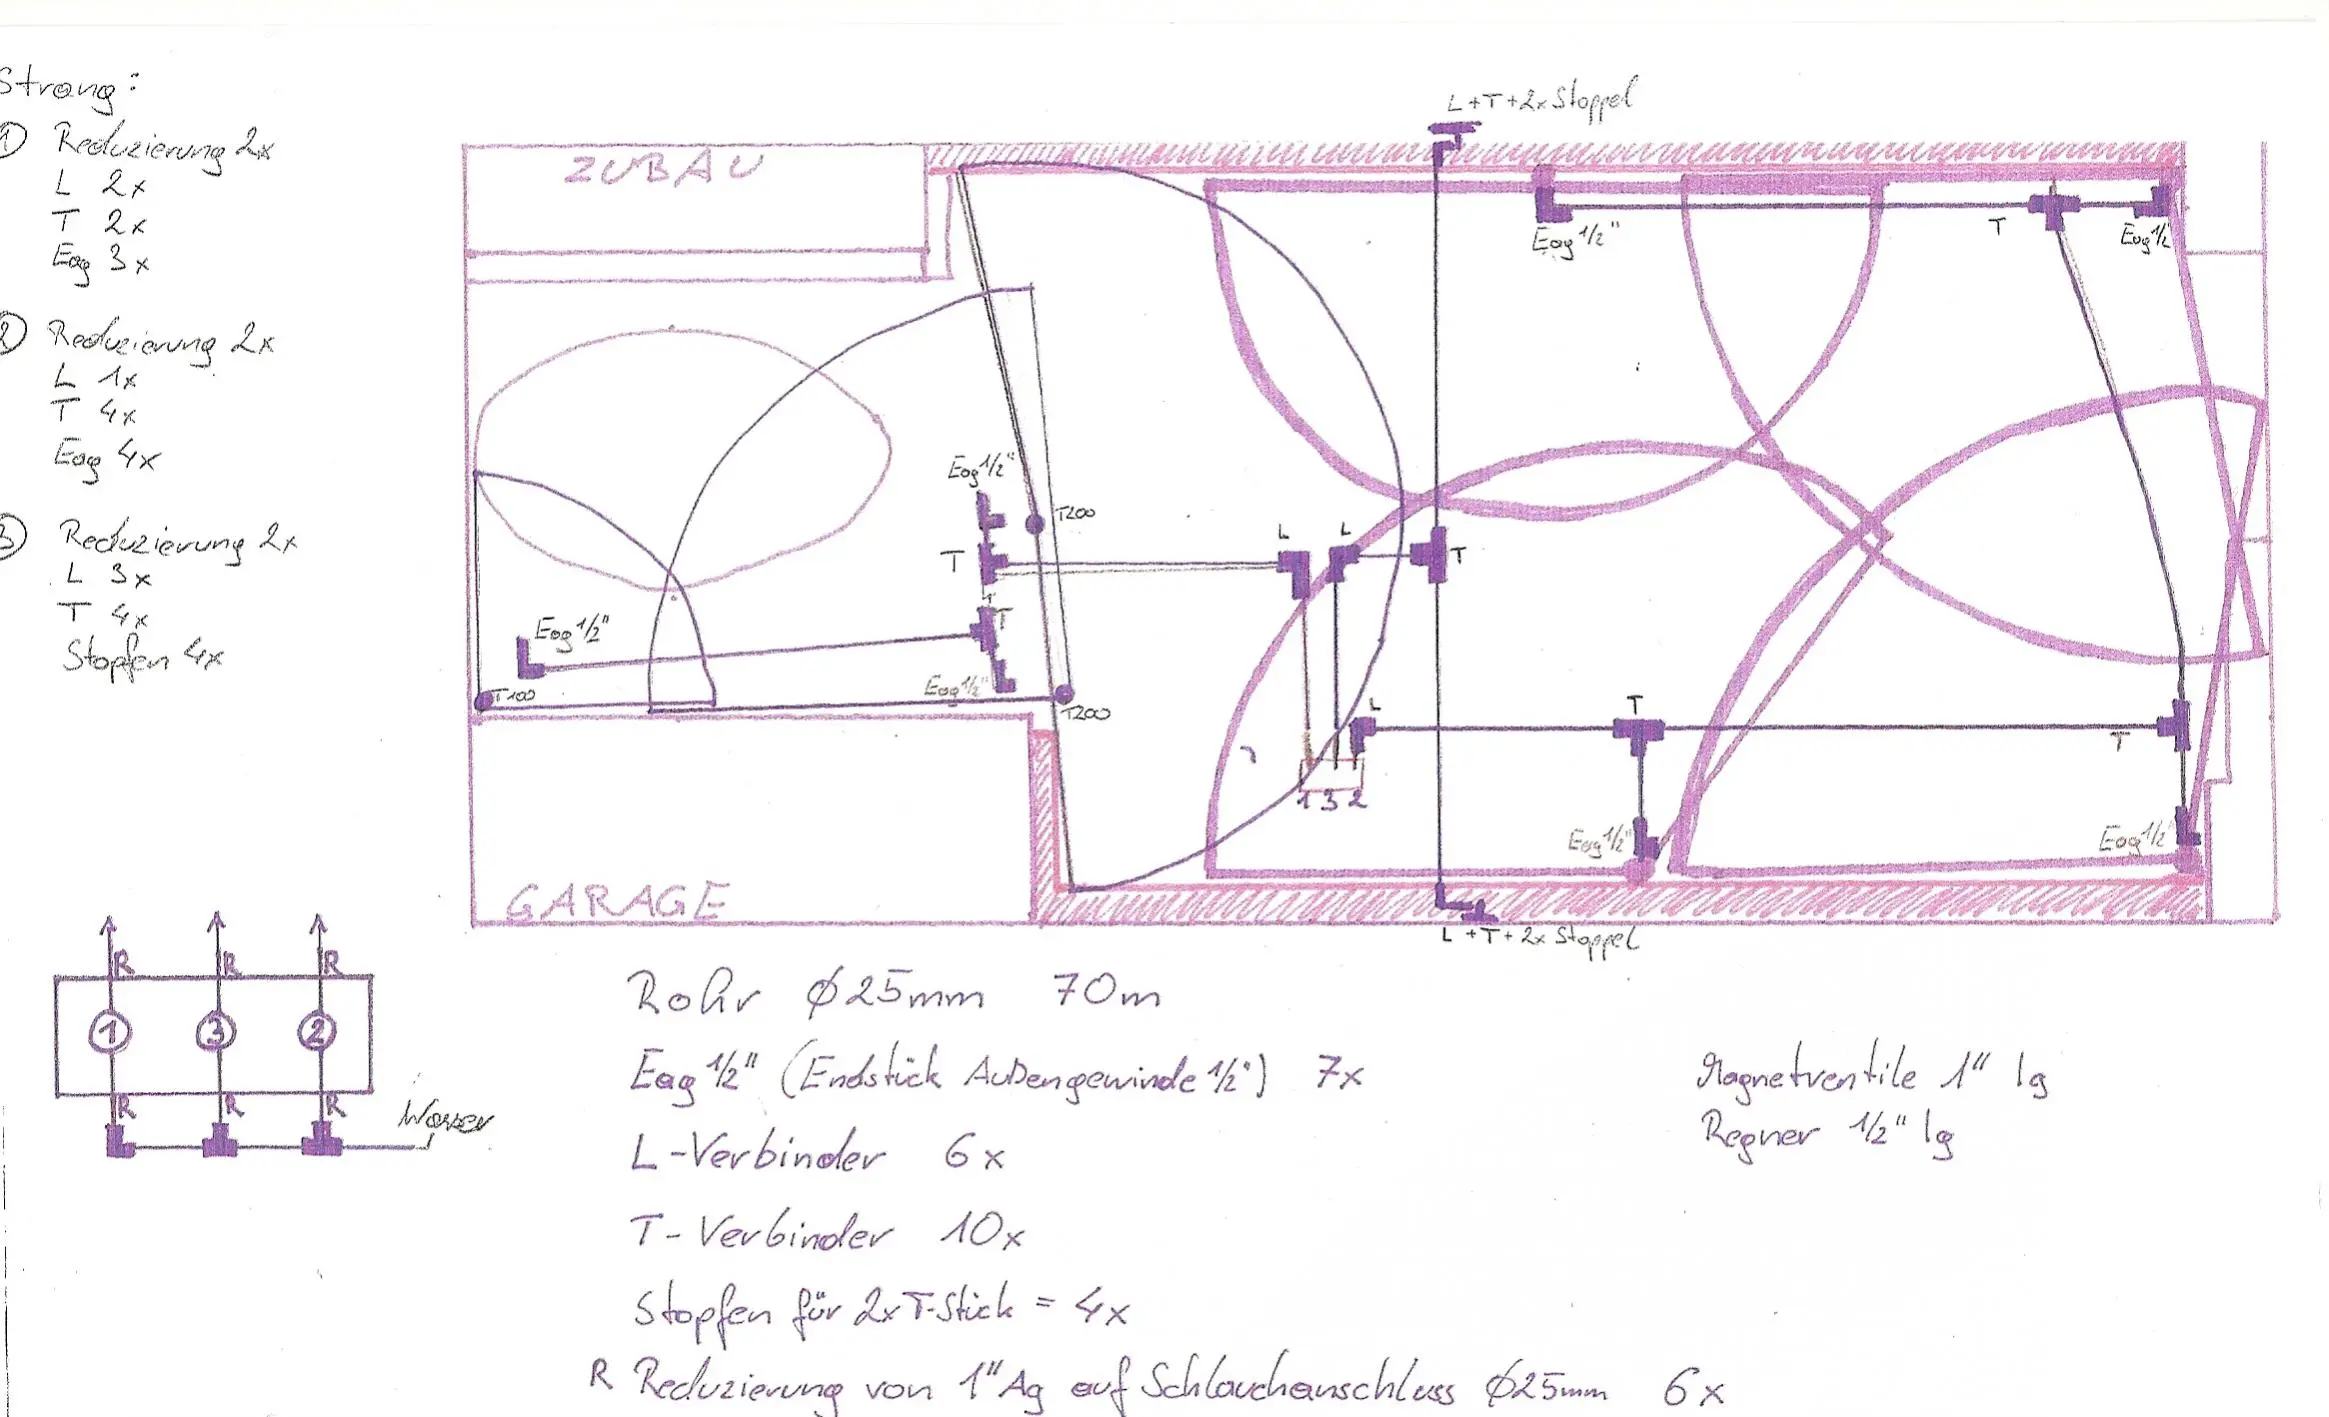 Strang:
① Reduzierung 2x
L 2x
T 2x
Eag 3x
② Reduzierung 2x
L 1x
T 4x
Eag 4x
③ Reduzierung 2x
L 3x
T 4x
Stopfen 4x
L+T+2x Stoppel
ZUBAU
Eag 1/2"
T
Eag 1/2"
Eag 1/2"
T200
T
L
L
T
T
Eag 1/2"
T100
Eag 1/2"
T200
L
T
T
1 3 2
Eag 1/2"
Eag 1/2"
GARAGE
L+T+2x Stoppel
R R R
1 3 2
R R R
Wasser
Rohr ϕ25mm 70m
Eag 1/2" (Endstück Außengewinde 1/2") 7x
L-Verbinder 6x
T-Verbinder 10x
Stopfen für 2xT-Stück = 4x
R Reduzierung von 1"Ag auf Schlauchanschluss ϕ25mm 6x
Magnetventile 1" Ig
Regner 1/2" Ig